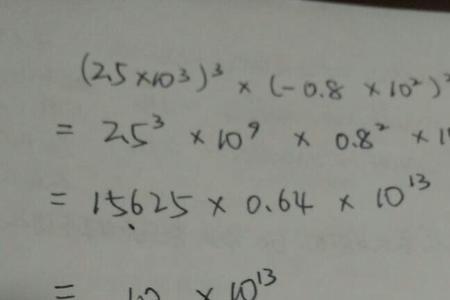 (2.5 × 10³)³ × (-0.8 × 10²)²
= 2.5³ × 10⁹ × 0.8² × 1
= 15.625 × 0.64 × 10¹³
= 10 × 10¹³